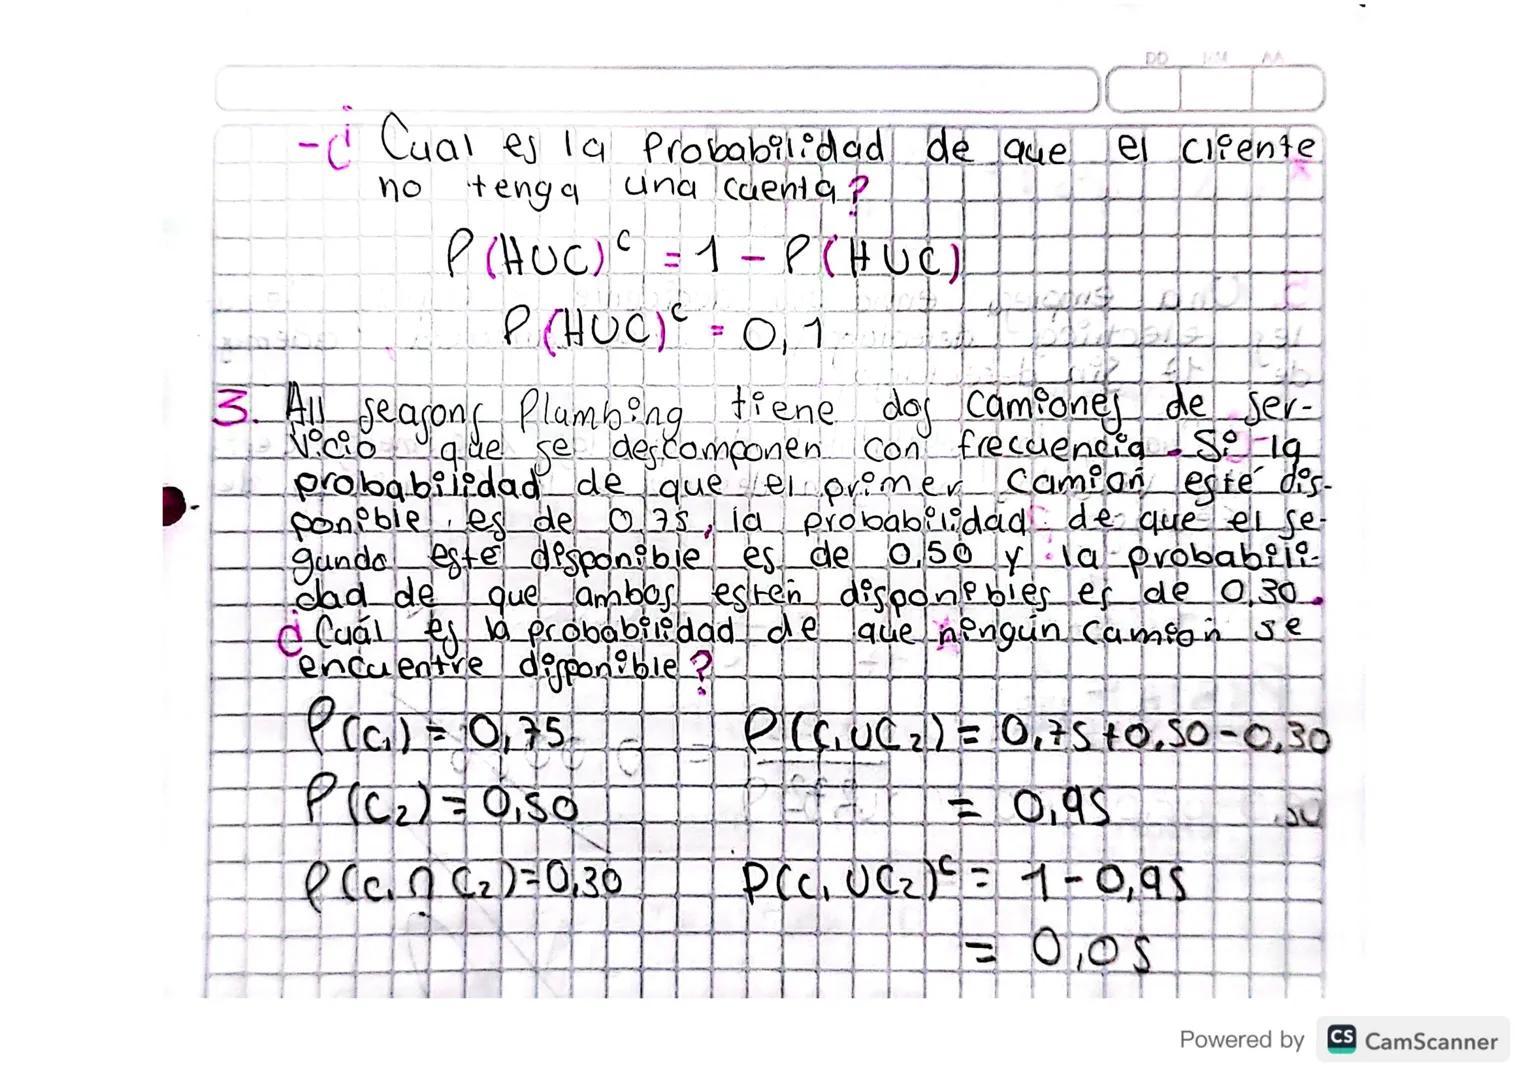 DD MM AA
-¿ Cual es la Probabilidad de que el cliente
no tenga una cuenta?
P(HUC)ᶜ = 1 - P(HUC)
P(HUC)ᶜ = 0,1
3. All seasons Plumbing tiene dos camiones de ser-
vicio que se descomponen con frecuencia. Si la
probabilidad de que el primer camión esté dis-
ponible es de 0.75, la probabilidad de que el se-
gundo esté disponible es de 0.50 y la probabili-
dad de que ambos estén disponibles es de 0.30.
¿Cuál es la probabilidad de que ningún camión se
encuentre disponible?
P(C₁) = 0,75 P(C₁UC₂) = 0,75+0,50-0,30
P(C₂) = 0,50 = 0,95
P(C₁∩C₂)=0,30 P(C₁UC₂)ᶜ = 1-0,95
= 0,05
Powered by CS CamScanner